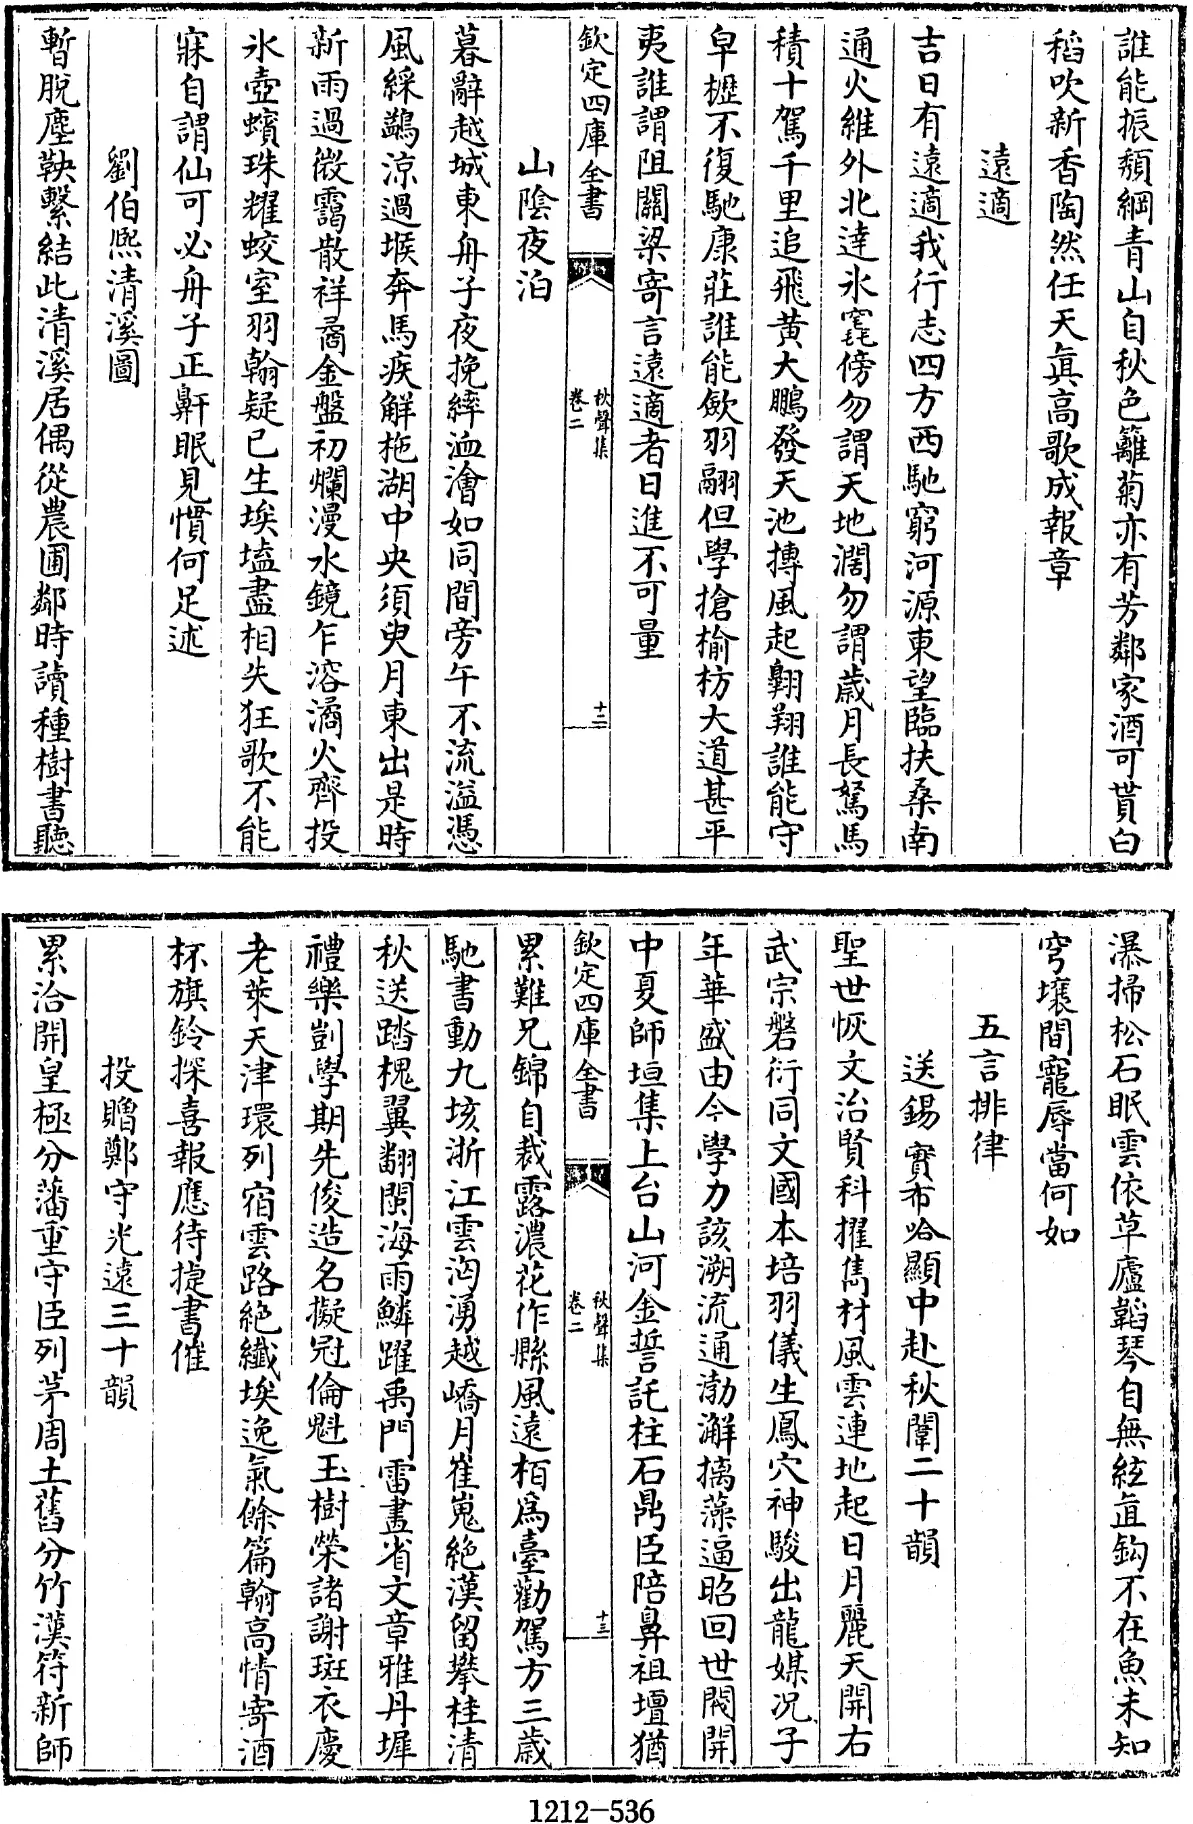 誰能振頽綱青山自秋色籬菊亦有芳鄰家酒可貰白
稻吹新香陶然任天眞高歌成報章
遠適
吉日有遠適我行志四方西馳窮河源東望臨扶桑南
通火維外北達氷窀傍勿謂天地濶勿謂歳月長駑馬
積十駕千里追飛黄大鵬發天池摶風起翺翔誰能守
皁櫪不復馳康莊誰能斂羽翮但學搶榆枋大道甚平
夷誰謂阻關梁寄言遠適者日進不可量
欽定四庫全書
秋聲集
卷二
十二
山陰夜泊
暮辭越城東舟子夜挽繂洫澮如同間旁午不流溢憑
風綵鷁凉過堠奔馬疾解柂湖中央須臾月東出是時
新雨過微靄散祥矞金盤初爛漫水鏡乍溶潏火齊投
氷壺蠙珠耀蛟室羽翰疑已生埃壒盡相失狂歌不能
寐自謂仙可必舟子正鼾眠見慣何足述
劉伯熙清溪圖
暫脫塵鞅繫結此清溪居偶從農圃鄰時讀種樹書聽
瀑掃松石眠雲依草廬韜琴自無絃直鈎不在魚未知
穹壤間寵辱當何如
五言排律
送錫寶布哈顯中赴秋闈二十韻
聖世恢文治賢科擢雋材風雲連地起日月麗天開右
武宗磐衍同文國本培羽儀生鳳穴神駿出龍媒况子
年華盛由今學力該溯流通渤澥摛藻逼昭回世閥開
中夏師垣集上台山河金誓託柱石鼎臣陪鼻祖壇猶
欽定四庫全書
秋聲集
卷二
十三
累難兄錦自裁露濃花作縣風遠栢爲臺勸駕方三歳
馳書動九垓浙江雲洶湧越嶠月崔嵬絶漢留攀桂清
秋送踏槐翼翻閩海雨鱗躍禹門雷畫省文章雅丹墀
禮樂剴學期先俊造名擬冠倫魁玉樹榮諸謝斑衣慶
老萊天津環列宿雲路絶纎埃逸氣餘篇翰高情寄酒
杯旗鈴探喜報應待捷書催
投贈鄭守光遠三十韻
累洽開皇極分藩重守臣列茅周土舊分竹漢符新師
1212-536